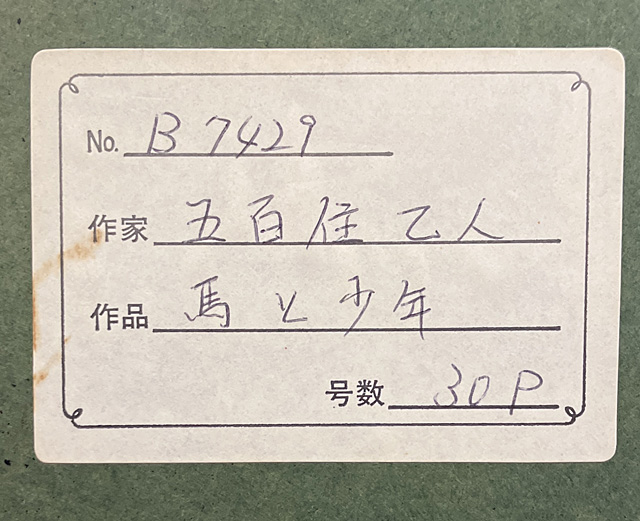 No. B 7429
作家 五百住乙人
作品 馬と少年
号数 30P